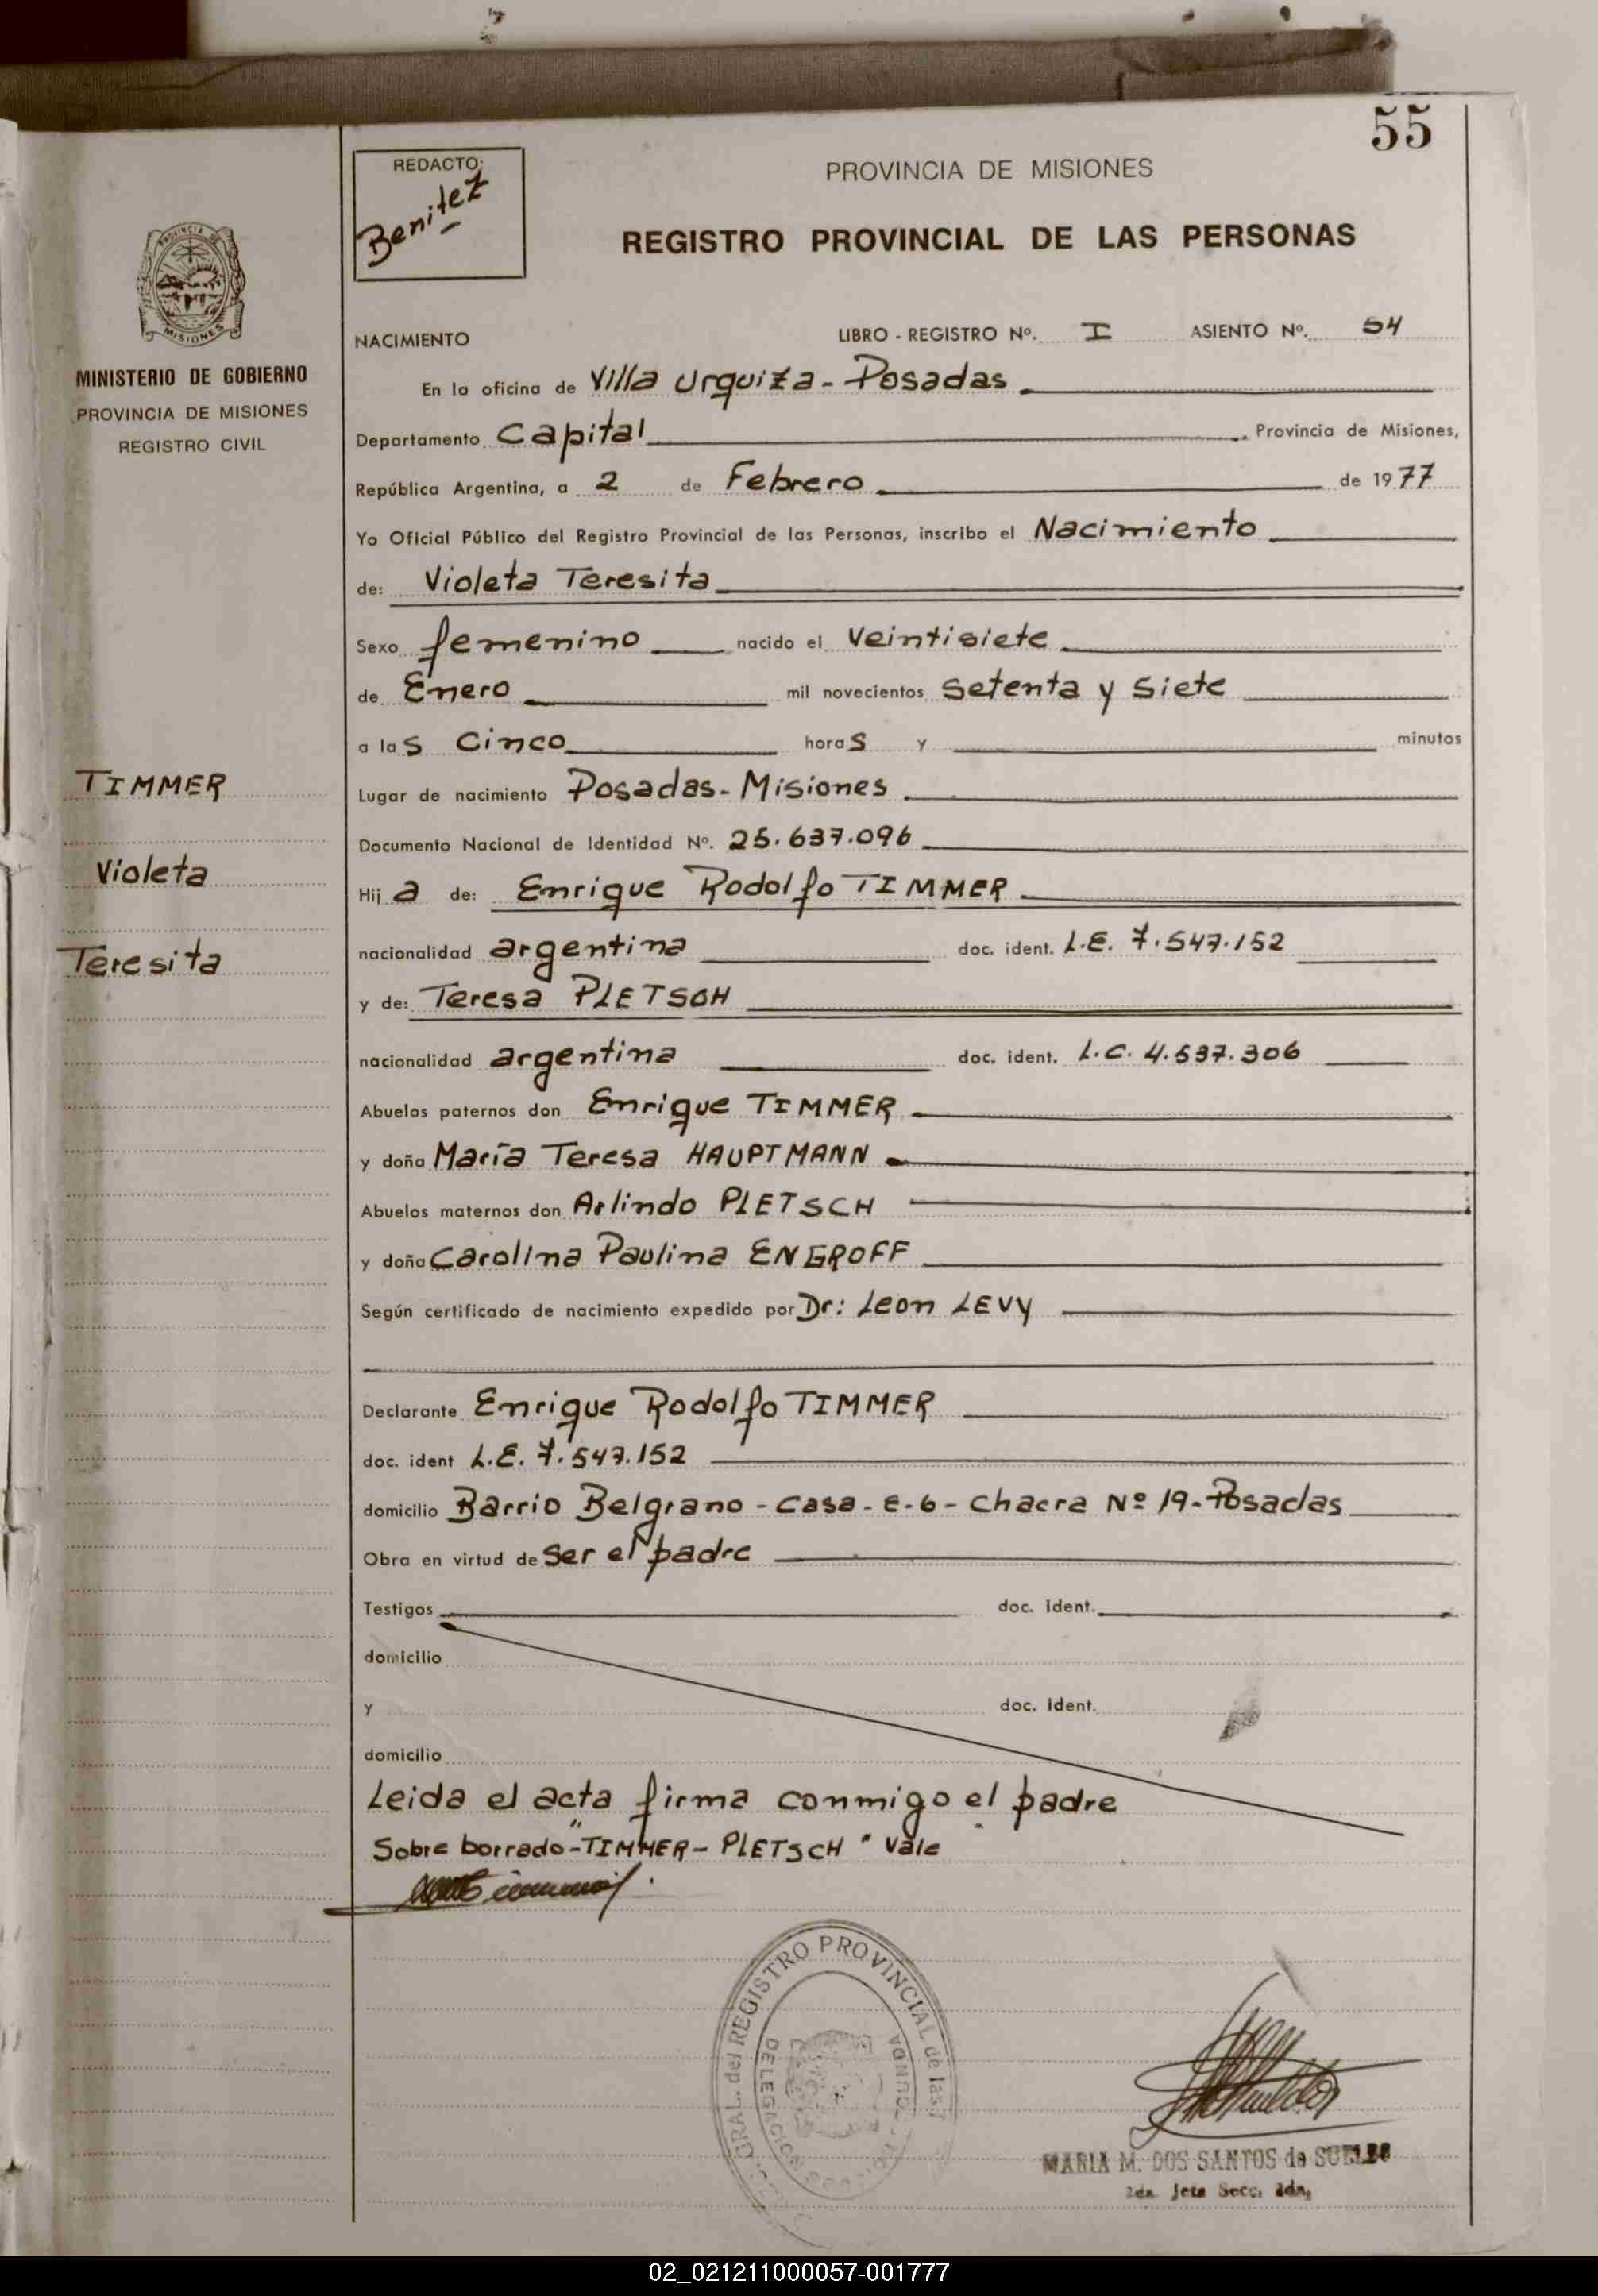 55
REDACTO:
Benitez
PROVINCIA DE MISIONES
REGISTRO PROVINCIAL DE LAS PERSONAS
MISIONES
MINISTERIO DE GOBIERNO
PROVINCIA DE MISIONES
REGISTRO CIVIL
NACIMIENTO LIBRO - REGISTRO Nº. I ASIENTO Nº. 54
En la oficina de Villa Urquiza - Posadas
Departamento Capital Provincia de Misiones,
República Argentina, a 2 de Febrero de 1977
Yo Oficial Público del Registro Provincial de las Personas, inscribo el Nacimiento
de: Violeta Teresita
Sexo femenino nacido el veintisiete
de Enero mil novecientos setenta y siete
a las cinco horas y minutos
TIMMER
Violeta
Teresita
Lugar de nacimiento Posadas - Misiones
Documento Nacional de Identidad Nº. 25.637.096
Hija de: Enrique Rodolfo TIMMER
nacionalidad argentina doc. ident. L.E. 7.547.152
y de: Teresa PLETSCH
nacionalidad argentina doc. ident. L.C. 4.537.306
Abuelos paternos don Enrique TIMMER
y doña María Teresa HAUPTMANN
Abuelos maternos don Arlindo PLETSCH
y doña Carolina Paulina ENGROFF
Según certificado de nacimiento expedido por Dr: Leon LEVY
Declarante Enrique Rodolfo TIMMER
doc. ident L.E. 7.547.152
domicilio Barrio Belgrano - Casa - E-6 - Chacra Nº 19 - Posadas
Obra en virtud de ser el padre
Testigos doc. ident.
domicilio
y doc. ident.
domicilio
Leida el acta firma conmigo el padre
Sobre borrado "-TIMMER - PLETSCH" Vale
GRAL. del REGISTRO PROVINCIAL de las
DELEGACION
MARIA M. DOS SANTOS de
2da. Jefe Secc. 2da,
02_021211000057-001777